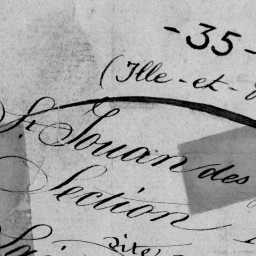 -35-
(Ille-et-
St Jouan des
Section
dite